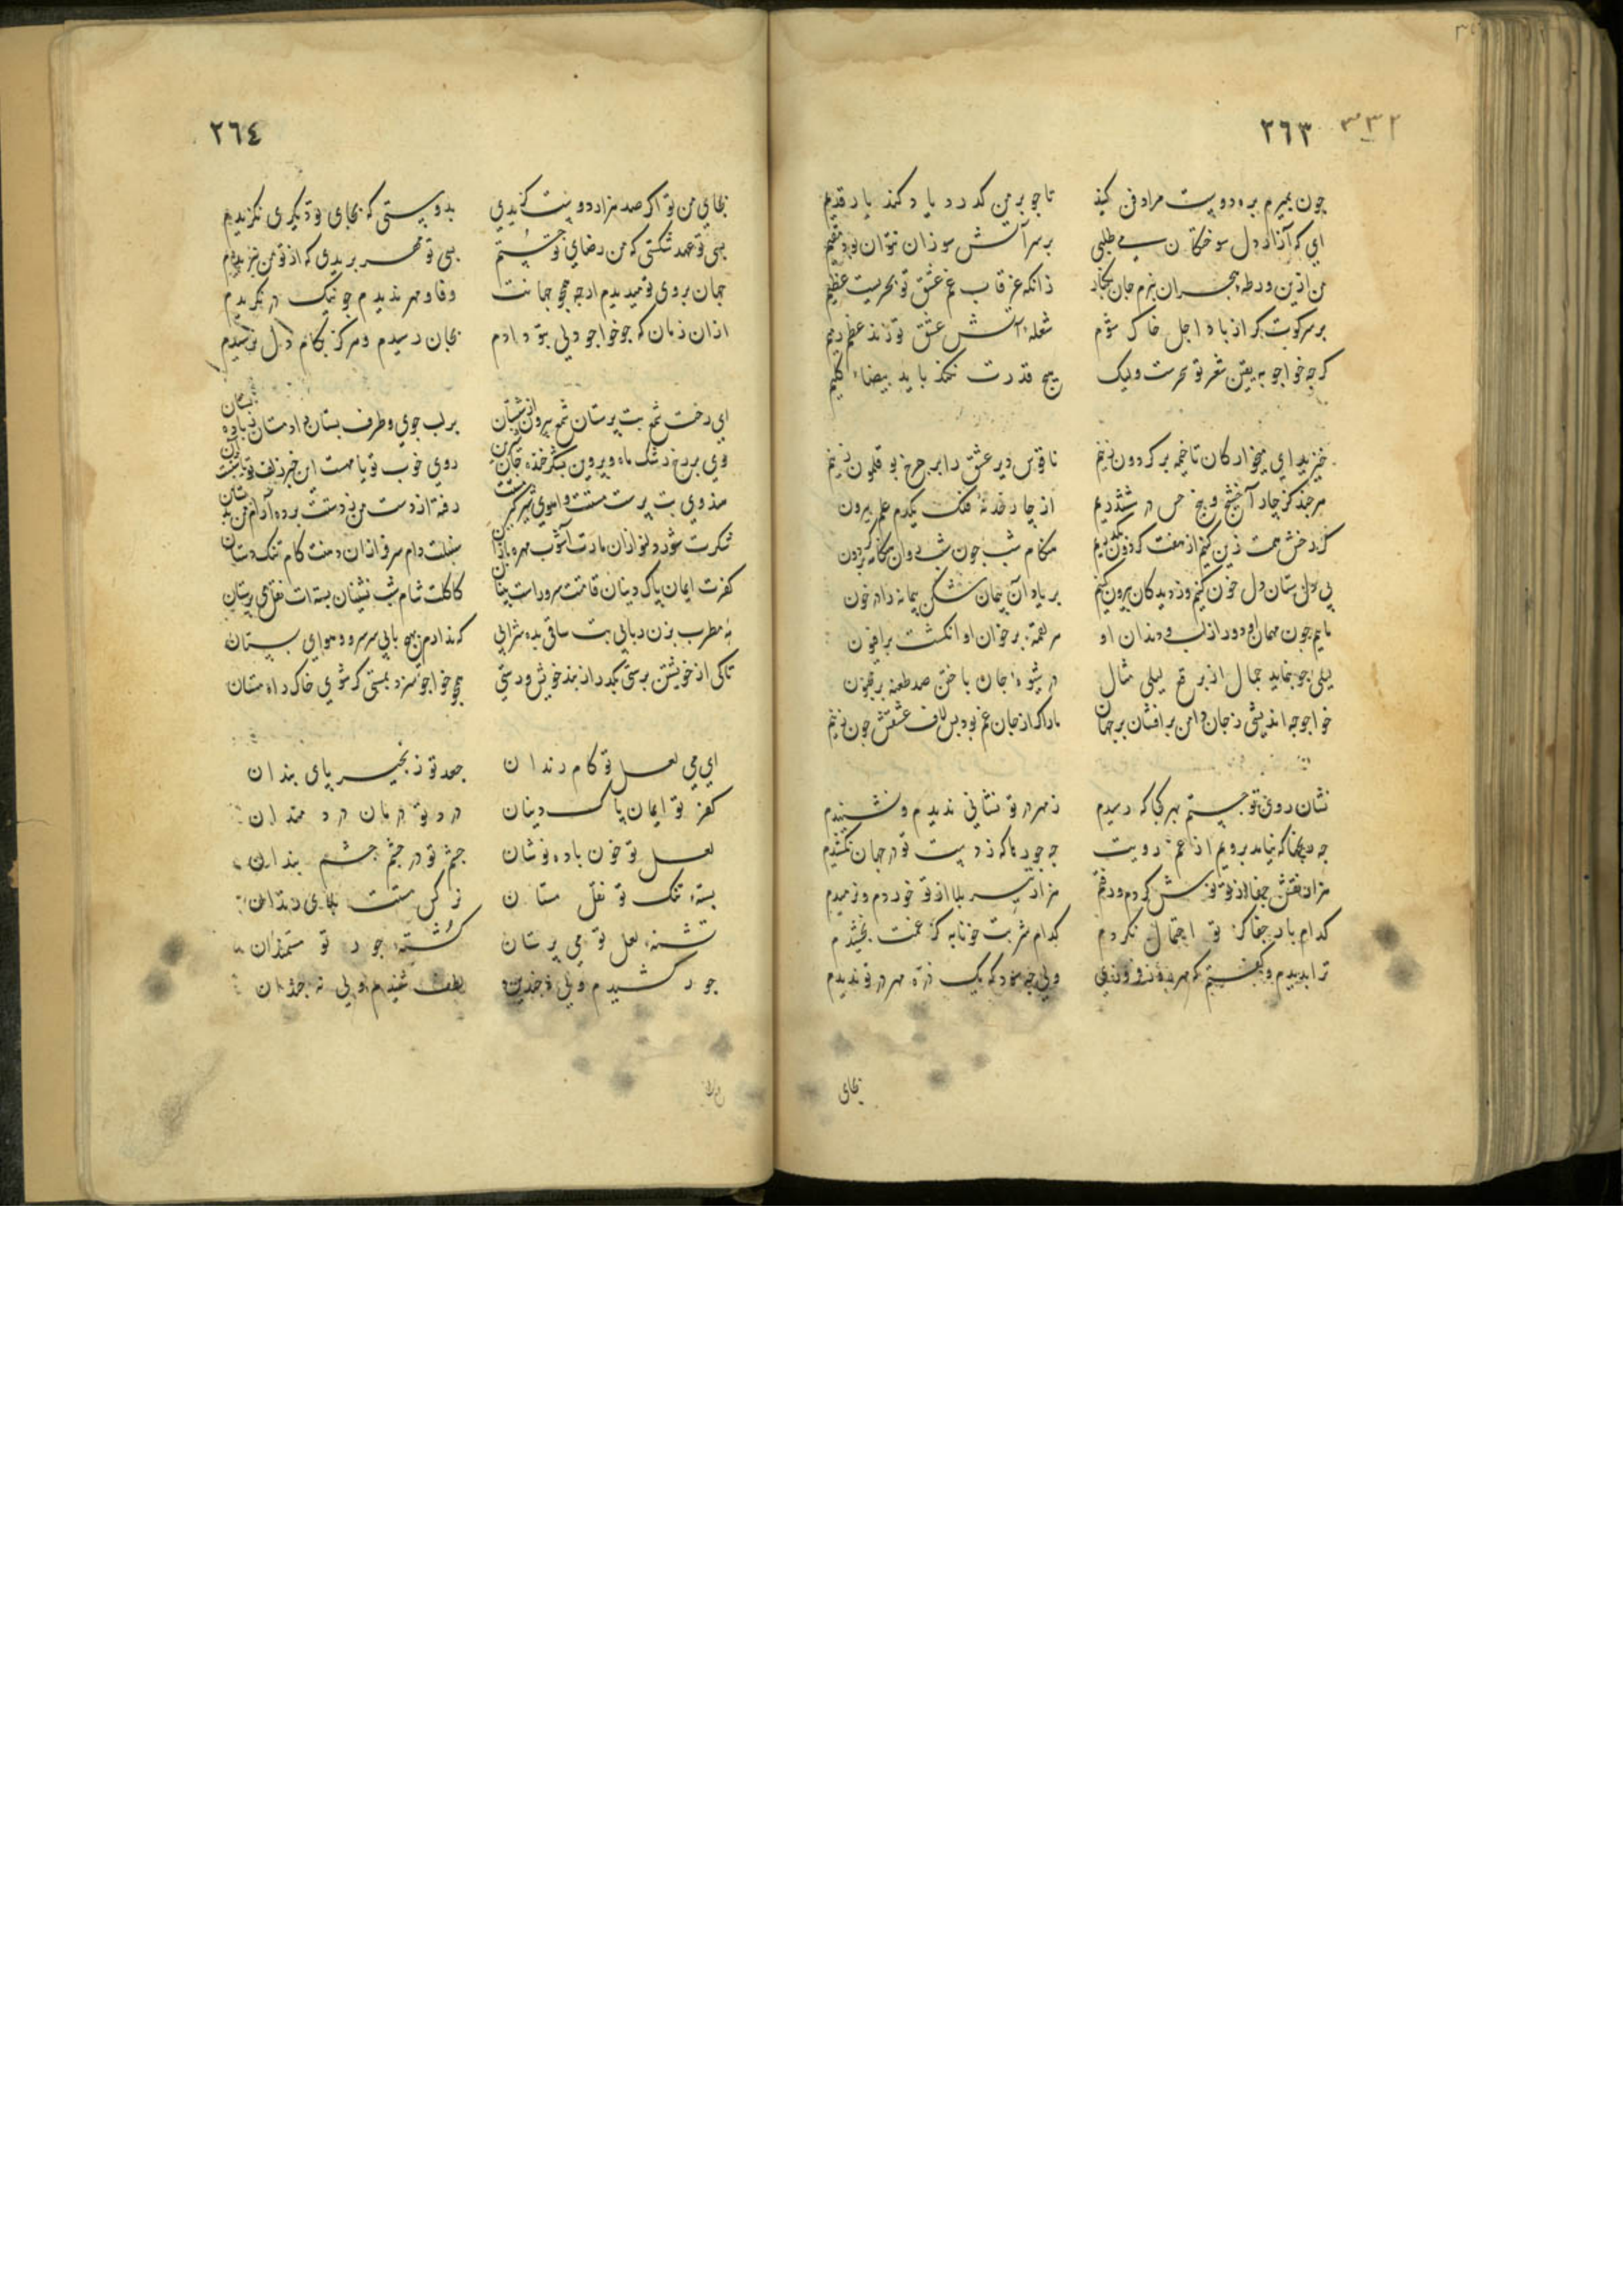 ٢٦٣ ٣٣٢
چون بمیرم بره دوست مرا دفن کنید تا چو بر من گذرد یاد کند یار قدیم
ای که آزار دل سوختگان می طلبی بر سر آتش سوزان نتوان بود مقیم
من ازین ورطه هجران نبرم جان بکنار زانکه غرقاب غم عشق تو بحریست عظیم
بر سر کویت گر از باد اجل خاک شوم شعله آتش عشق تو زند عظم رمیم
گرچه خواجو به یقین شعر تو سحرست ولیک هیچ قدرت نکند با ید بیضاء کلیم
خیزید ای میخوارگان تا خیمه بر گردون زنیم ناقوس دیر عشق را بر چرخ بوقلمون زنیم
هر چند کز چار آخشیج و پنج حس در ششدریم از چار حد نه فلک یکدم علم بیرون
گر رخش همت زین کنیم از هفت گردون بگذریم هنگام شب چون شبروان هنگامه بر گردون
پی دلستان دل خون کنیم وز دیدگان بیرون کنیم بر یاد آن پیمان شکن پیمانه را در خون
مائیم چون مهمان او دور از لب و دندان او هر لقمه بر خوان او انگشت بر افیون
لیلی چو بنماید جمال از برقع لیلی مثال در شیوه جان باختن صد طعنه بر مجنون
خواجو چه اندیشی ز جان دامن بر افشان بر جهان ما را که از جان غم بود پس لاف عشقش چون زنیم
نشان روی تو جستم بهر کجا که رسیدم ز مهر در تو نشانی ندیدم و نشنیدم
چه رنجها که نیامد برویم از غم رویت چه جورها که ز دست تو در جهان نکشیدم
هزار نقش جفا از تو نوش کردم و رفتم هزار تیر بلا از تو خوردم و نرمیدم
کدام بار جفا کز تو احتمال نکردم کدام شربت خونابه کز غمت نچشیدم
ترا بدیدم و گفتم که مهر روز فروزی ولی چه سود که یک ذره مهر در تو ندیدم
بجای
٢٦٤
بجای من تو اگر صد هزار دوست گزیدی بدوستی که بجای تو دیگری نگزیدم
بسی تو عهد شکستی که من رضای تو جستم بسی تو مهر بریدی که از تو من نبریدم
جهان بروی تو میدیدم ار چه همچو جهانت وفا و مهر ندیدم چو نیک در نگریدم
از آن زمان که چو خواجو دلی بتو دادم بجان رسیدم و هرگز بکام دل نرسیدم
ای رخت شمع بت پرستان شمع بیرون از شبستان بر لب جوی و طرف بستان داد مستان ز باده بستان
وی برخ رشک ماه و پروین بشکر خنده جان شیرین روی خوب تو یا مهست این چین زلف تو یا شبست آن
هندوی بت پرست پستت و آهوی شیرگیر مستت رفته از دست من ز دستت برده آرام من بدستان
شکرت شور دلنوازان مارت آشوب مهره بازان سنبلت دام سرفرازان دهنت کام تنگ دستان
کفرت ایمان پاک دینان قامتت سرو راست بینان کاکلت شام شب نشینان پسته ات نقل می پرستان
به مطرب بزن ربابی بت ساقی بده شرابی که ندارم هیچ بابی سر سرو و هوای بستان
تا کی از خویشتن پرستی بگذر از بند خویش و رستی همچو خواجو سزد بمستی گر شوی خاک راه مستان
ای می لعل تو کام رندان جعد تو زنجیر پای بندان
کفر تو ایمان پاک دینان درد تو درمان دردمندان
لعل تو خون باده نوشان چشم تو در چشم چشم بندان
پسته تنگ تو نقل مستان نرگس مستت بلای رندان
تشنه لعل تو می پرستان کشته جور تو مستمندان
جور کشیدم ولی نه چندین لطف شنیدم ولی نه چندان